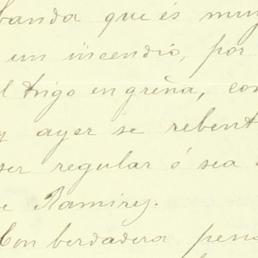 banda que és muy
un incendio, por
l trigo en greña, con
y ayer se rebent
ser regular ó sea
e Ramirez.
Con berdadera pena